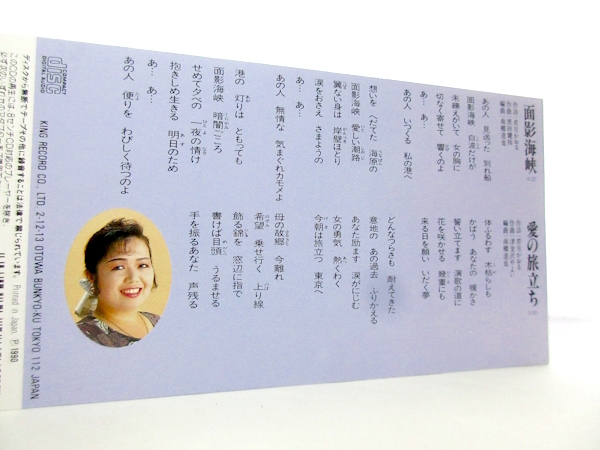 面影海峡
作詞
作曲
編曲
あの人 見送った 別れ船
面影海峡 白波だけが
未練えがいて 女の胸に
切なく寄せて 響くのよ
あ… あ…
あの人 いつくる 私の港へ
想いを へだてた 海原の
面影海峡 愛しい潮路
翼ない身は 岸壁ほとり
涙をおさえ さまようの
あ… あ…
あの人 無情な 気まぐれカモメよ
港の 灯りは ともっても
面影海峡 暗闇ごころ
せめて夕べの 一夜の情け
抱きしめ生きる 明日のため
あ… あ…
あの人 便りを わびしく待つのよ
愛の旅立ち
作詞
作曲
編曲
体ふるわす 木枯らしも
かばう あなたの 暖かさ
誓い立てます 演歌の道に
花を咲かせる 幾重にも
来る日を願い いだく夢
どんなつらさも 耐えてきた
意地の あの過去 ふりかえる
あなた励ます 涙がにじむ
女の勇気 熱くわく
今朝は旅立つ 東京へ
母の故郷 今離れ
希望 乗せ行く 上り線
飾る錦を 窓辺に指で
書けば目頭 うるませる
手を振るあなた 声残る
COMPACT
disc
DIGITAL AUDIO
KING RECORD CO., LTD. 2-12-13 OTOWA BUNKYO-KU TOKYO 112 JAPAN
ディスクから無断でテープその他に録音することは法律で禁じられています。 Printed in Japan. Ⓟ 1990